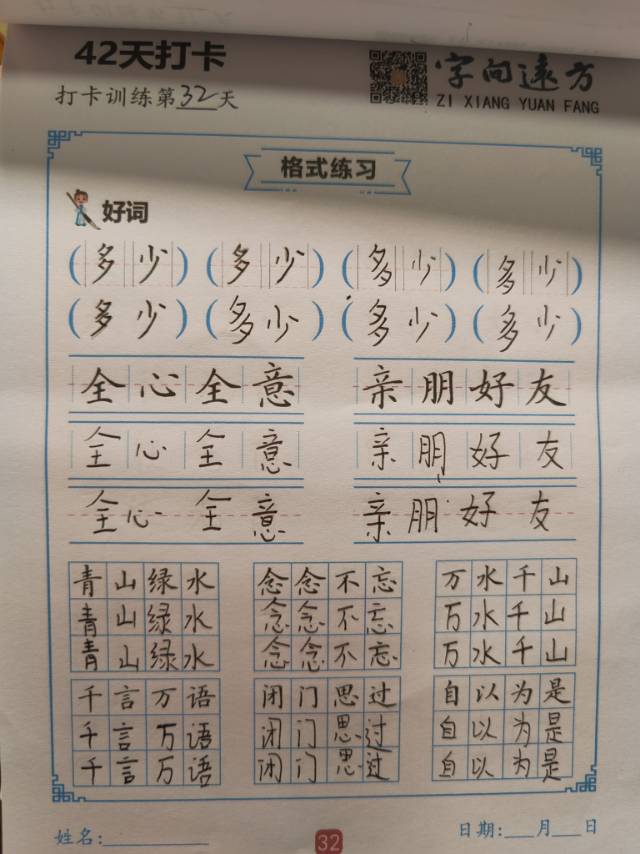 42天打卡
字向远方
打卡训练第32天
ZI XIANG YUAN FANG
格式练习
好词
(多少) (多少) (多少) (多少)
(多少) (多少) (多少) (多少)
全心全意 亲朋好友
全心全意 亲朋好友
全心全意 亲朋好友
青山绿水 念念不忘 万水千山
青山绿水 念念不忘 万水千山
青山绿水 念念不忘 万水千山
千言万语 闭门思过 自以为是
千言万语 闭门思过 自以为是
千言万语 闭门思过 自以为是
姓名:__________ 32 日期:___月___日